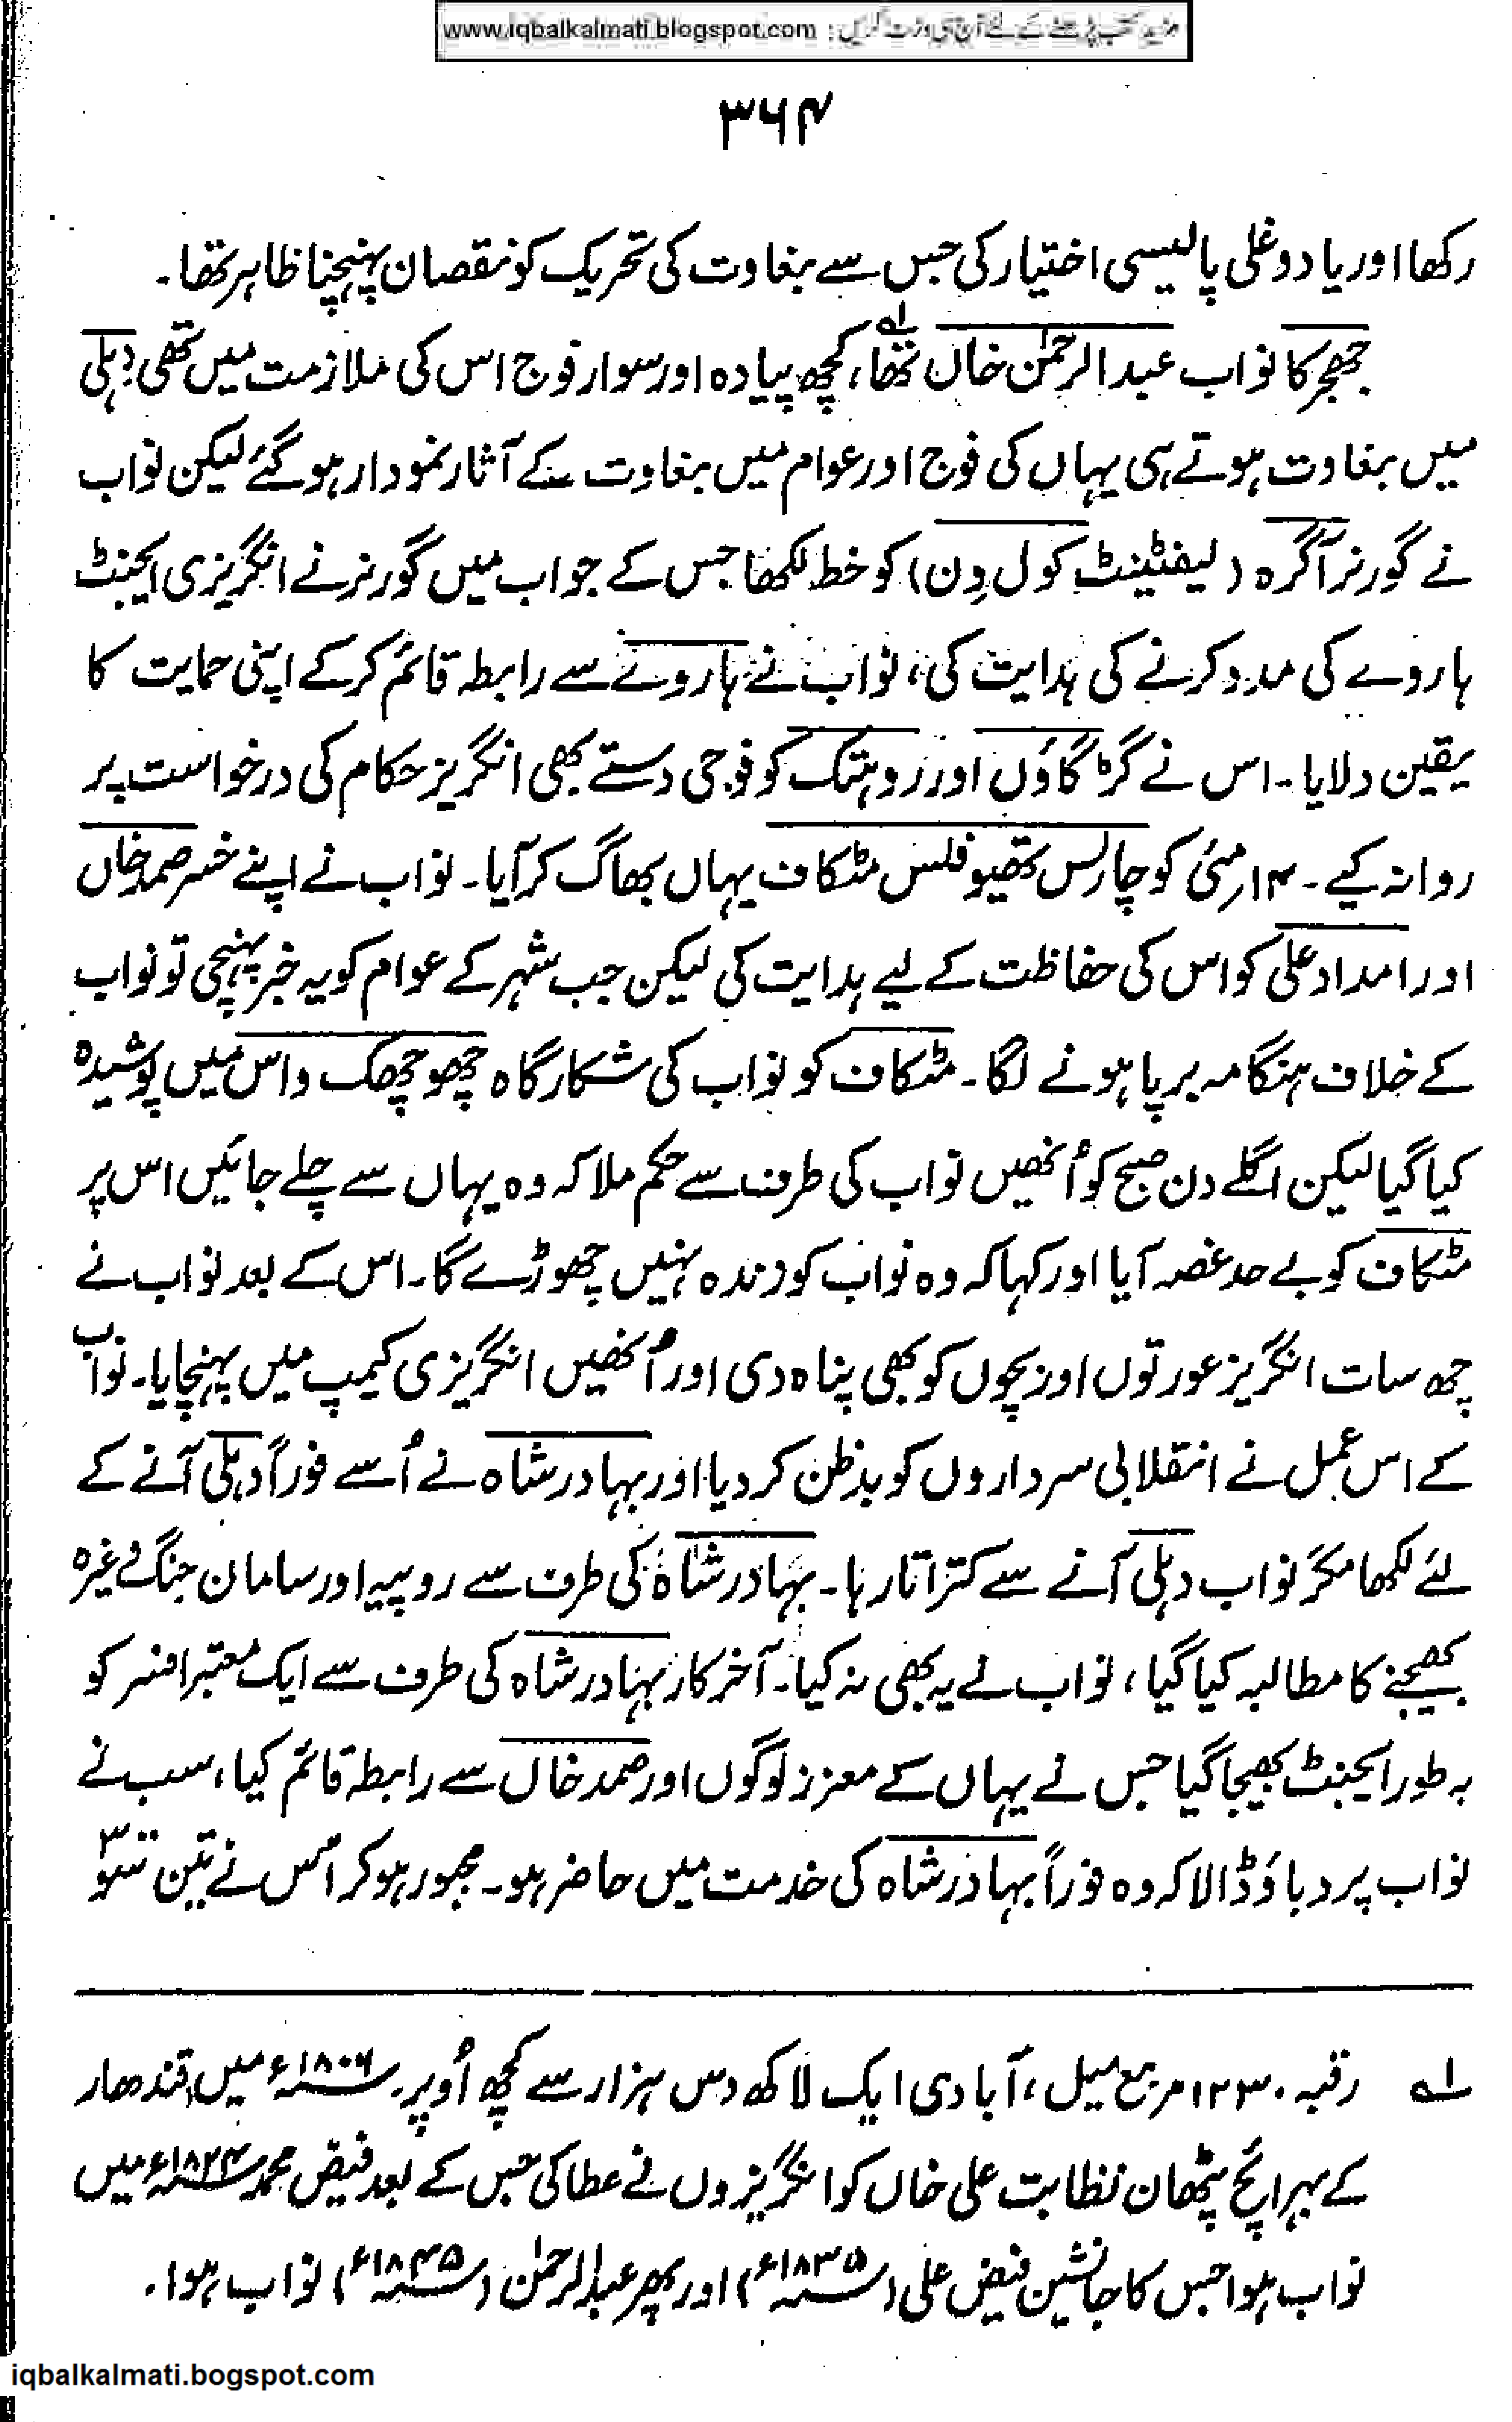 مزید کتب پڑھنے کے لئے آج ہی وزٹ کریں : www.iqbalkalmati.blogspot.com
۳۶۴
رکھا اور یا دوغلی پالیسی اختیار کی جس سے بغاوت کی تحریک کو نقصان پہنچنا ظاہر تھا۔
جھجر کا نواب عبدالرحمٰن خاں تھا، لہ کچھ پیادہ اور سوار فوج اس کی ملازمت میں تھی دہلی
میں بغاوت ہوتے ہی یہاں کی فوج اور عوام میں بغاوت کے آثار نمودار ہوگئے لیکن نواب
نے گورنر آگرہ (لیفٹیننٹ کول وِن) کو خط لکھا جس کے جواب میں گورنر نے انگریزی ایجنٹ
ہاروے کی مدد کرنے کی ہدایت کی، نواب نے ہاروے سے رابطہ قائم کرکے اپنی حمایت کا
یقین دلایا۔ اس نے گڑگاؤں اور روہتک کو فوجی دستے بھی انگریز حکام کی درخواست پر
روانہ کیے۔ ۱۴ر مئی کو چارلس تھیوفلس مٹکاف یہاں بھاگ کر آیا۔ نواب نے اپنے خسر صمد خاں
اور امداد علی کو اس کی حفاظت کے لیے ہدایت کی لیکن جب شہر کے عوام کو یہ خبر پہنچی تو نواب
کے خلاف ہنگامہ برپا ہونے لگا۔ مٹکاف کو نواب کی شکارگاہ چھوچھک واس میں پوشیدہ
کیا گیا لیکن اگلے دن صبح کو اُنھیں نواب کی طرف سے حکم ملا کہ وہ یہاں سے چلے جائیں اس پر
مٹکاف کو بے حد غصہ آیا اور کہا کہ وہ نواب کو زندہ نہیں چھوڑے گا۔ اس کے بعد نواب نے
چھ سات انگریز عورتوں اور بچوں کو بھی پناہ دی اور اُنھیں انگریزی کیمپ میں پہنچایا۔ نواب
کے اس عمل نے انقلابی سرداروں کو بدظن کر دیا اور بہادر شاہ نے اُسے فوراً دہلی آنے کے
لئے لکھا مگر نواب دہلی آنے سے کتراتا رہا۔ بہادر شاہ کی طرف سے روپیہ اور سامان جنگ وغیرہ
بھیجنے کا مطالبہ کیا گیا، نواب نے یہ بھی نہ کیا۔ آخرکار بہادر شاہ کی طرف سے ایک معتبر افسر کو
بہ طور ایجنٹ بھیجا گیا جس نے یہاں کے معزز لوگوں اور صمد خاں سے رابطہ قائم کیا، سب نے
نواب پر دباؤ ڈالا کہ وہ فوراً بہادر شاہ کی خدمت میں حاضر ہو۔ مجبور ہوکر اُس نے تین سو
لہ رقبہ ۱۲۳۰ مربع میل، آبادی ایک لاکھ دس ہزار سے کچھ اُوپر۔ ۱۸۰۶ء میں قندھار
کے بہرائچ پٹھان نظابت علی خاں کو انگریزوں نے عطا کی جس کے بعد فیض محمد ۱۸۲۴ء میں
نواب ہوا جس کا جانشین فیض علی (۱۸۳۵ء) اور پھر عبدالرحمٰن (۱۸۴۵ء) نواب ہوا۔
iqbalkalmati.bogspot.com